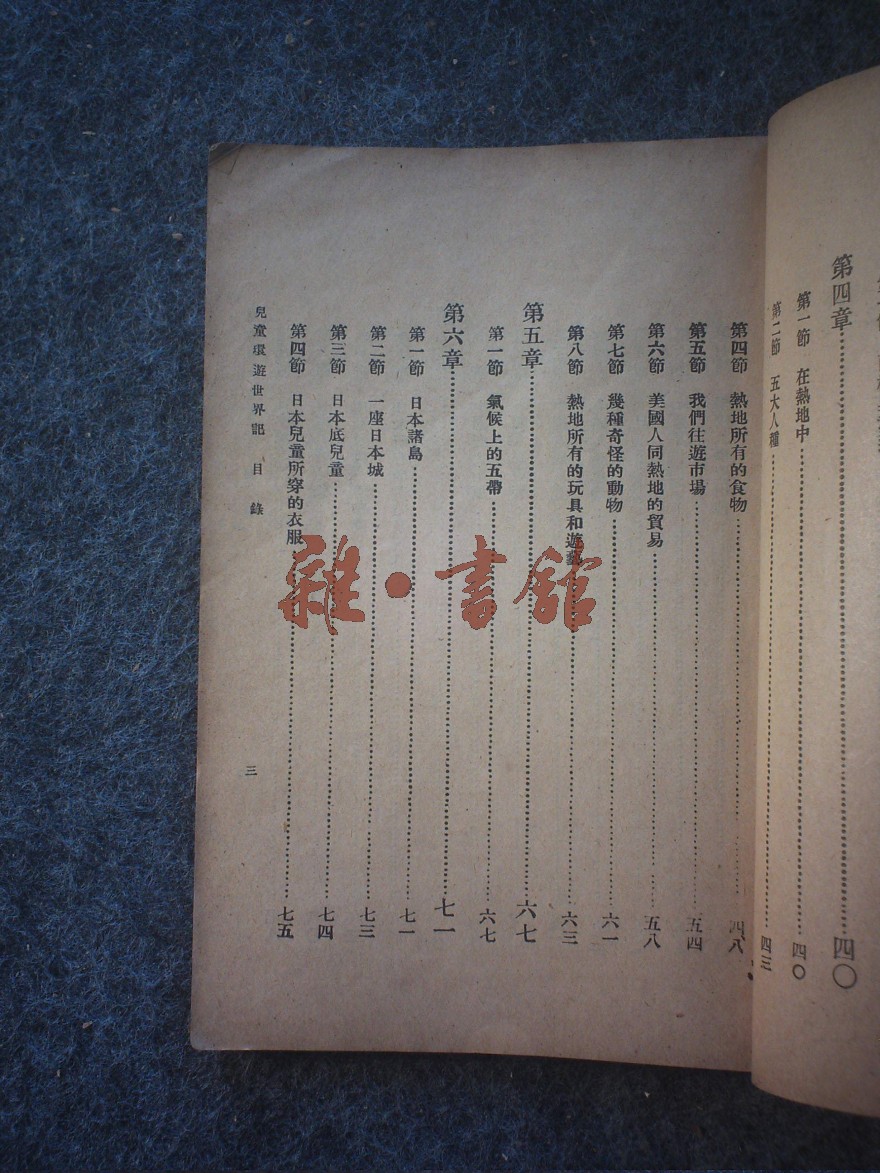 第四章……四〇
第一節　在熱地中……四〇
第二節　五大人種……四三
第四節　熱地所有的食物……四八
第五節　我們往遊市場……五四
第六節　美國人同熱地的貿易……五八
第七節　幾種奇怪的動物……六一
第八節　熱地所有的玩具和遊藝……六三
第五章……六七
第一節　氣候上的五帶……六七
第六章……七一
第一節　日本諸島……七一
第二節　一座日本城……七三
第三節　日本底兒童……七四
第四節　日本兒童所穿的衣服……七五
兒童環遊世界記　目錄　三
雜·書館